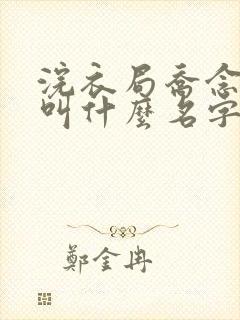 浣衣局喬念
叫什麼名字
鄭金冉